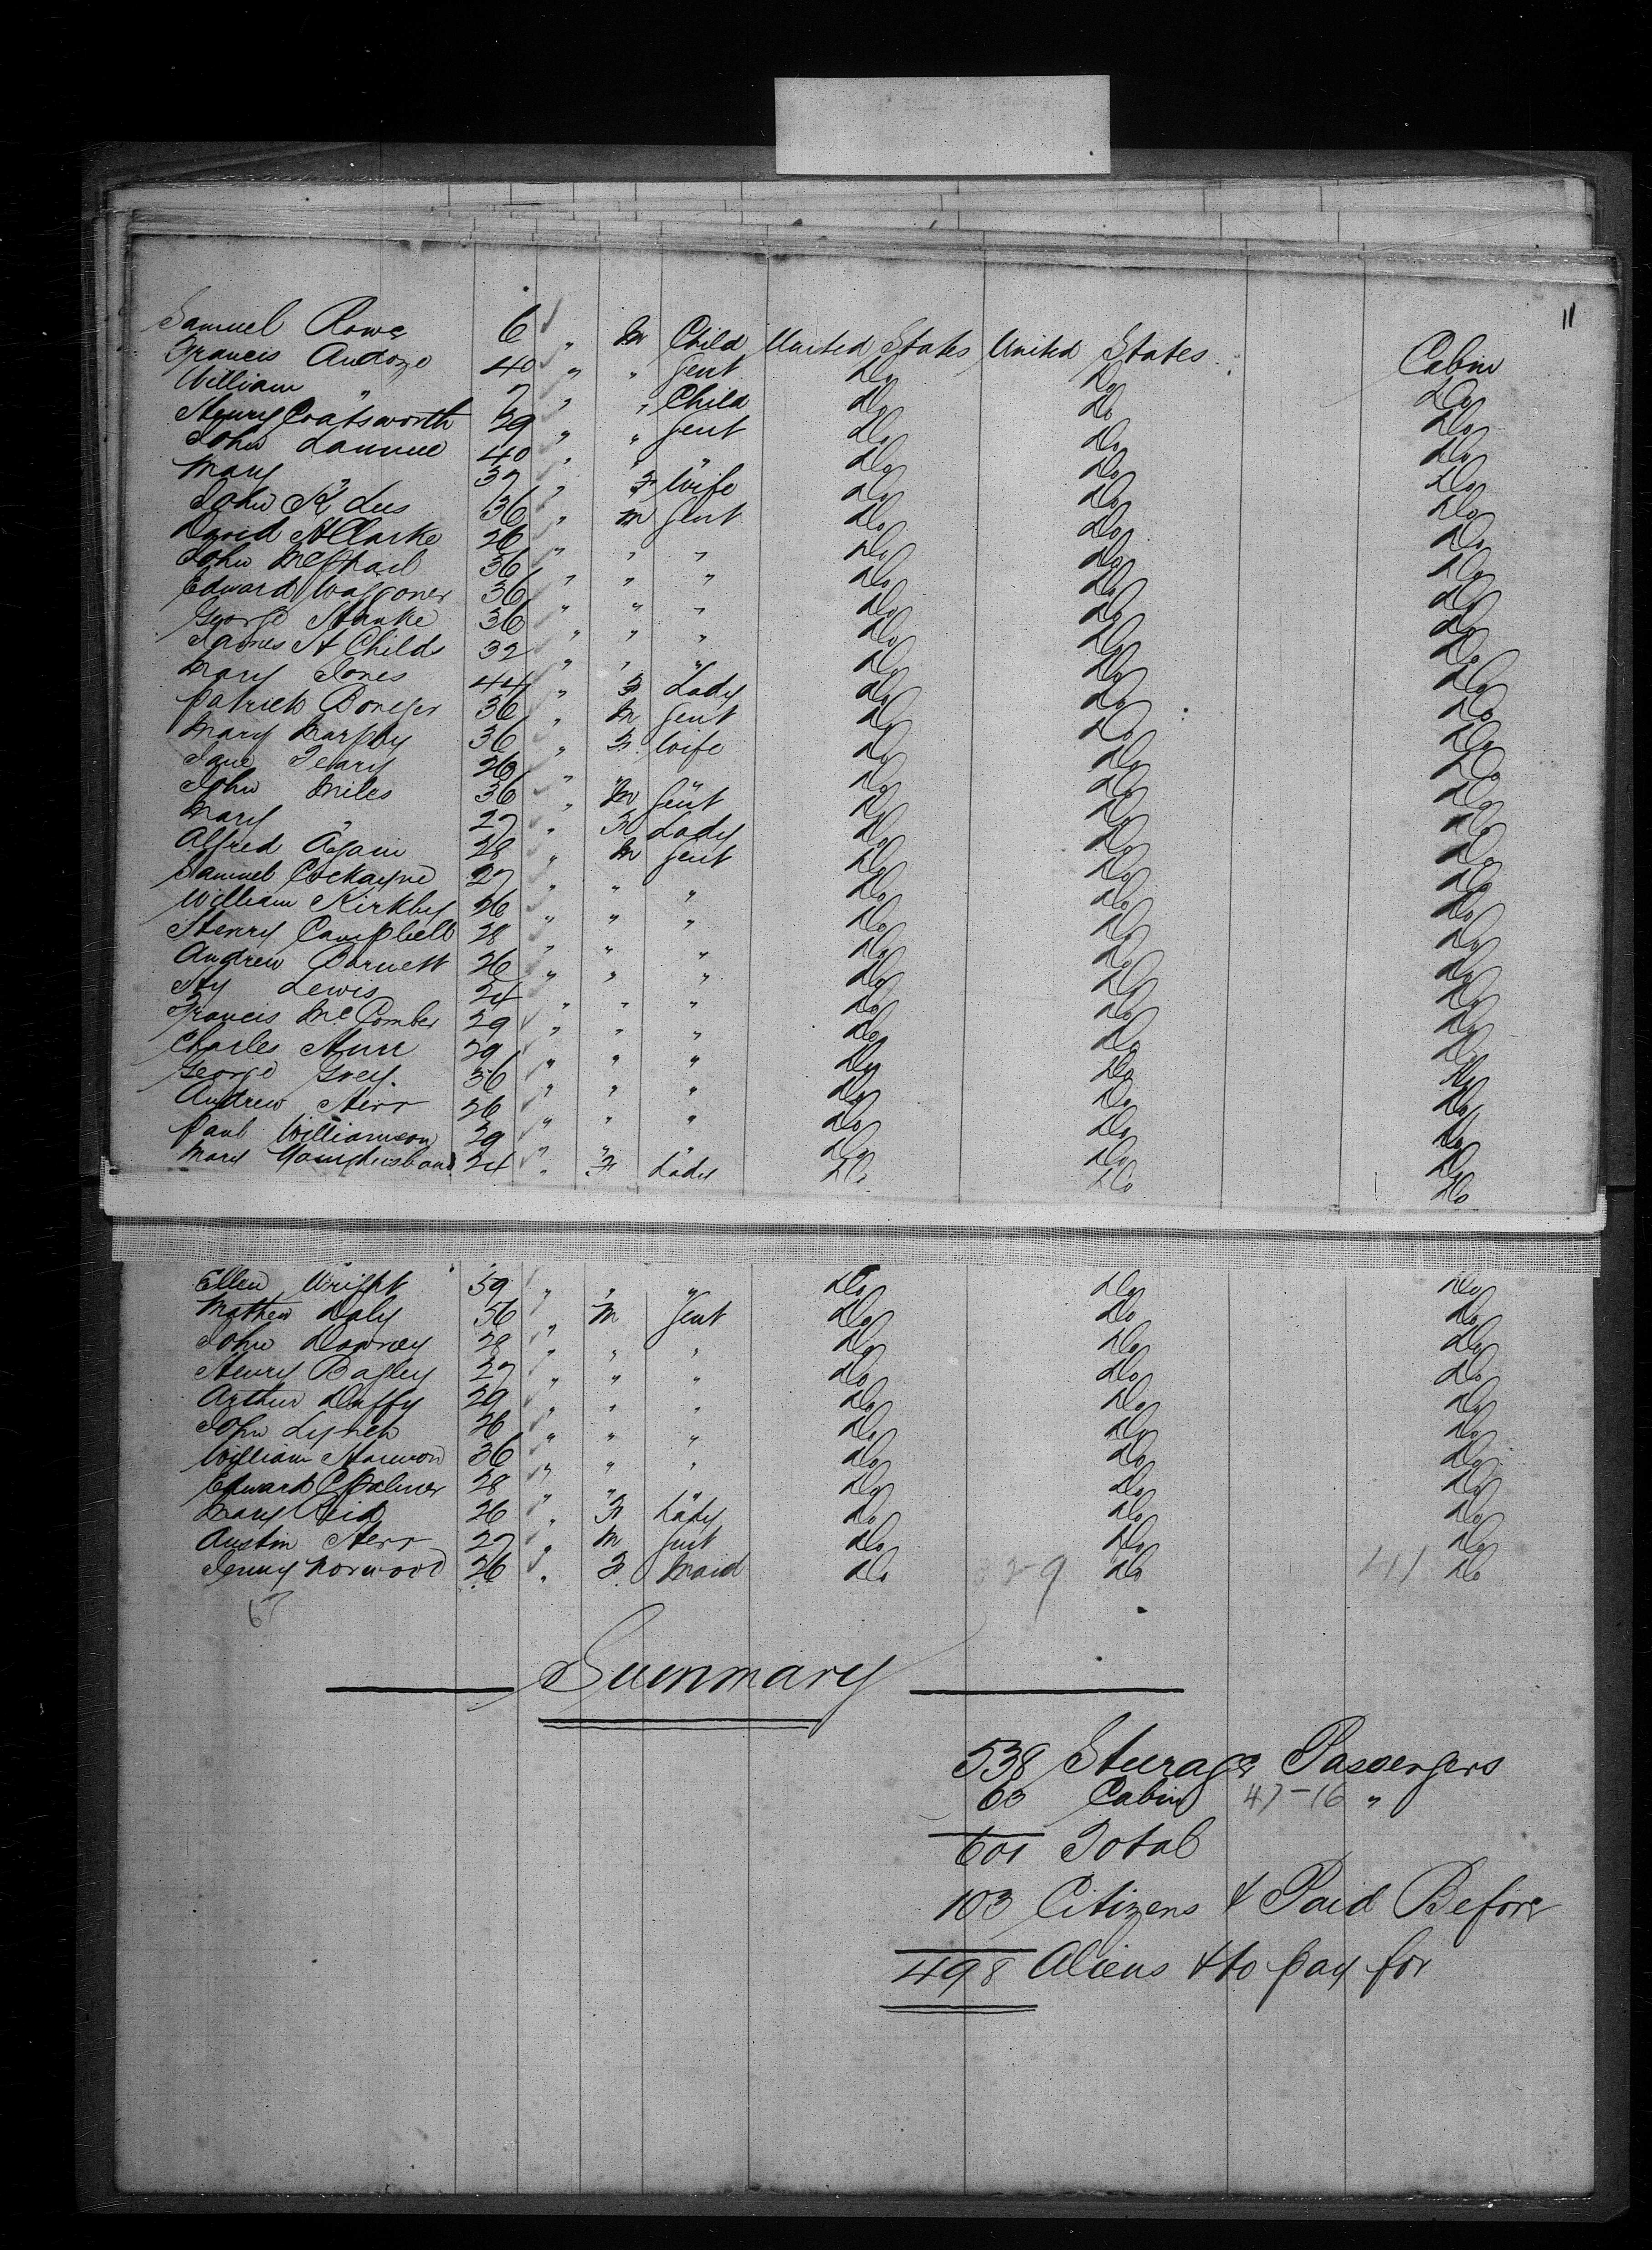 11
Samuel Rowe 6 " M Child United States United States Cabin
Francis 40 " " Gent Do Do Do
William " 7 " " Child Do Do Do
Henry Coatsworth 29 " " Gent Do Do Do
John 40 " " " Do Do Do
Mary " 37 " F Wife Do Do Do
John Lees 36 " M Gent Do Do Do
David H Clarke 26 " " " Do Do Do
John McPhail 36 " " " Do Do Do
Edward Waggoner 36 " " " Do Do Do
George 36 " " " Do Do Do
James H Childs 32 " " " Do Do Do
Mary Jones 44 " F Lady Do Do Do
Patrick 36 " M Gent Do Do Do
Mary Murphy 36 " F Wife Do Do Do
Jane 26 " " " Do Do Do
John Miles 36 " M Gent Do Do Do
Mary " 27 " F Lady Do Do Do
Alfred 28 " M Gent Do Do Do
Samuel Cockayne 27 " " " Do Do Do
William Kirkby 26 " " " Do Do Do
Henry Campbell 28 " " " Do Do Do
Andrew Barnett 26 " " " Do Do Do
Hy Lewis 24 " " " Do Do Do
Francis McComber 29 " " " Do Do Do
Charles 29 " " " Do Do Do
George Grey. 36 " " " Do Do Do
Andrew 26 " " " Do Do Do
Paul Williamson 29 " " " Do Do Do
Mary Younghusband 24 " F Lady Do Do Do
Ellen Wright 59 " " " Do Do Do
Mathew Daly 56 " M Gent Do Do Do
John Downey 28 " " " Do Do Do
Henry Bagley 27 " " " Do Do Do
Arthur Duffy 29 " " " Do Do Do
John Lynch 26 " " " Do Do Do
William 36 " " " Do Do Do
Edward C Palmer 28 " " " Do Do Do
Mary Reid 26 " F Lady Do Do Do
Austin 27 " M Gent Do Do Do
Jenny Norwood 26 " F Maid Do Do 41 Do
Summary
538 Steerage Passengers
63 Cabin 47-16 "
601 Total
103 Citizens & Paid Before
498 Aliens & to pay for